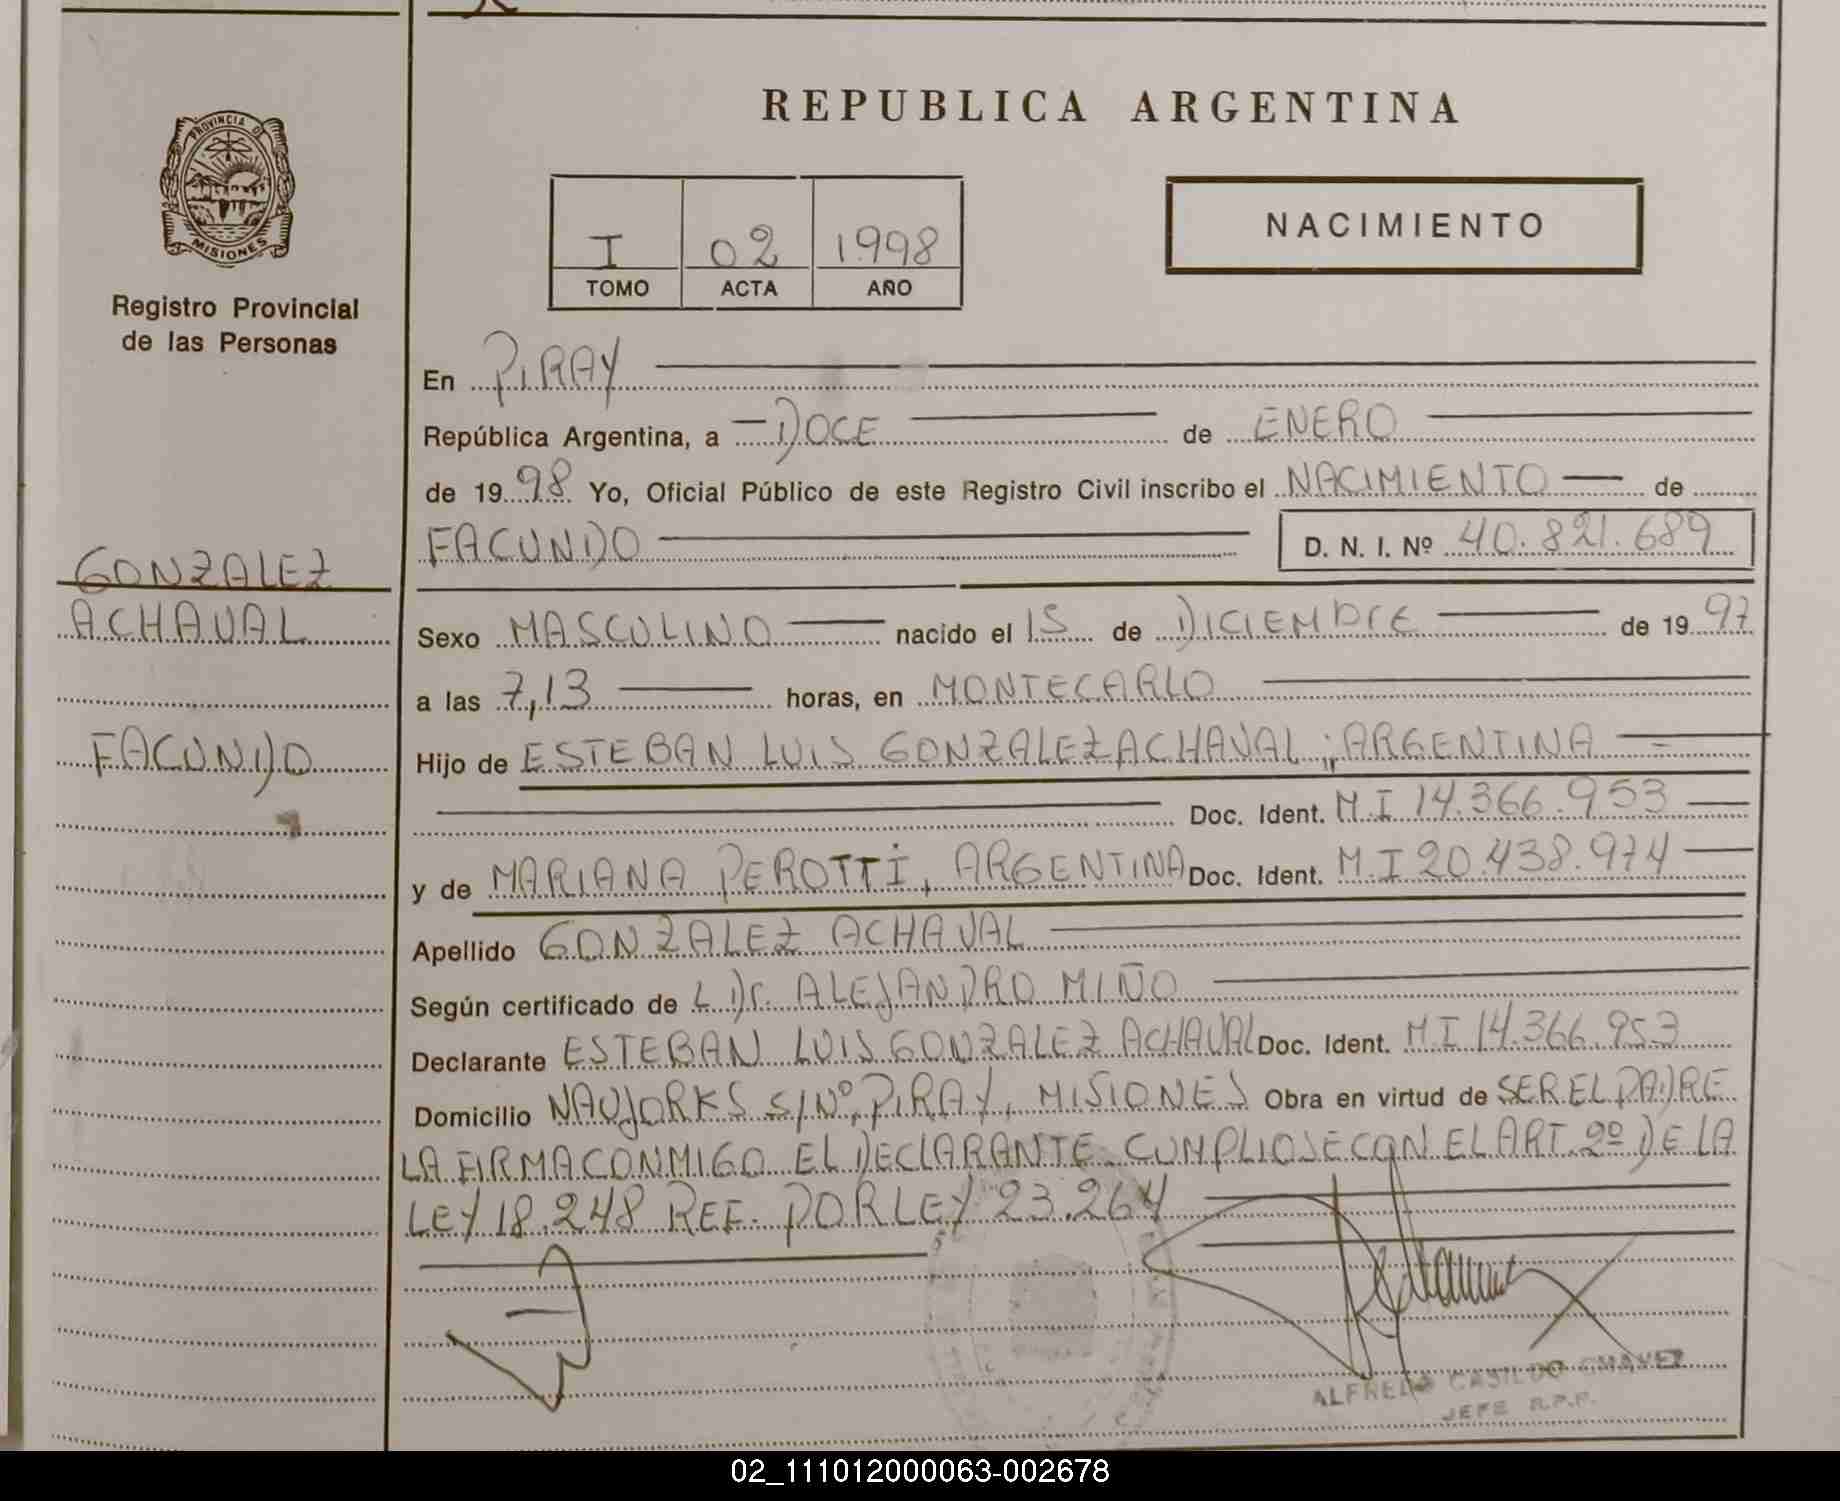 REPUBLICA ARGENTINA
PROVINCIA D
MISIONES
Registro Provincial
de las Personas
I 02 1998
TOMO ACTA AÑO
NACIMIENTO
En PIRAY
República Argentina, a DOCE de ENERO
de 1998 Yo, Oficial Público de este Registro Civil inscribo el NACIMIENTO de
FACUNDO D. N. I. Nº 40.821.689
GONZALEZ
ACHAVAL
FACUNDO
Sexo MASCULINO nacido el 15 de DICIEMBRE de 1997
a las 7,13 horas, en MONTECARLO
Hijo de ESTEBAN LUIS GONZALEZ ACHAVAL, ARGENTINA
Doc. Ident. M.I 14.366.953
y de MARIANA PEROTTI, ARGENTINA Doc. Ident. M.I 20.438.974
Apellido GONZALEZ ACHAVAL
Según certificado de L Dr. ALEJANDRO MIÑO
Declarante ESTEBAN LUIS GONZALEZ ACHAVAL Doc. Ident. M.I 14.366.953
Domicilio NAUJORKS S/Nº, PIRAY, MISIONES Obra en virtud de SER EL PADRE
LA FIRMA CONMIGO EL DECLARANTE. CUMPLIOSE CON EL ART. 2º DE LA
LEY 18.248 REF. POR LEY 23.264
ALFREDO CASILDO CHAVEZ
JEFE R.P.P.
02_111012000063-002678